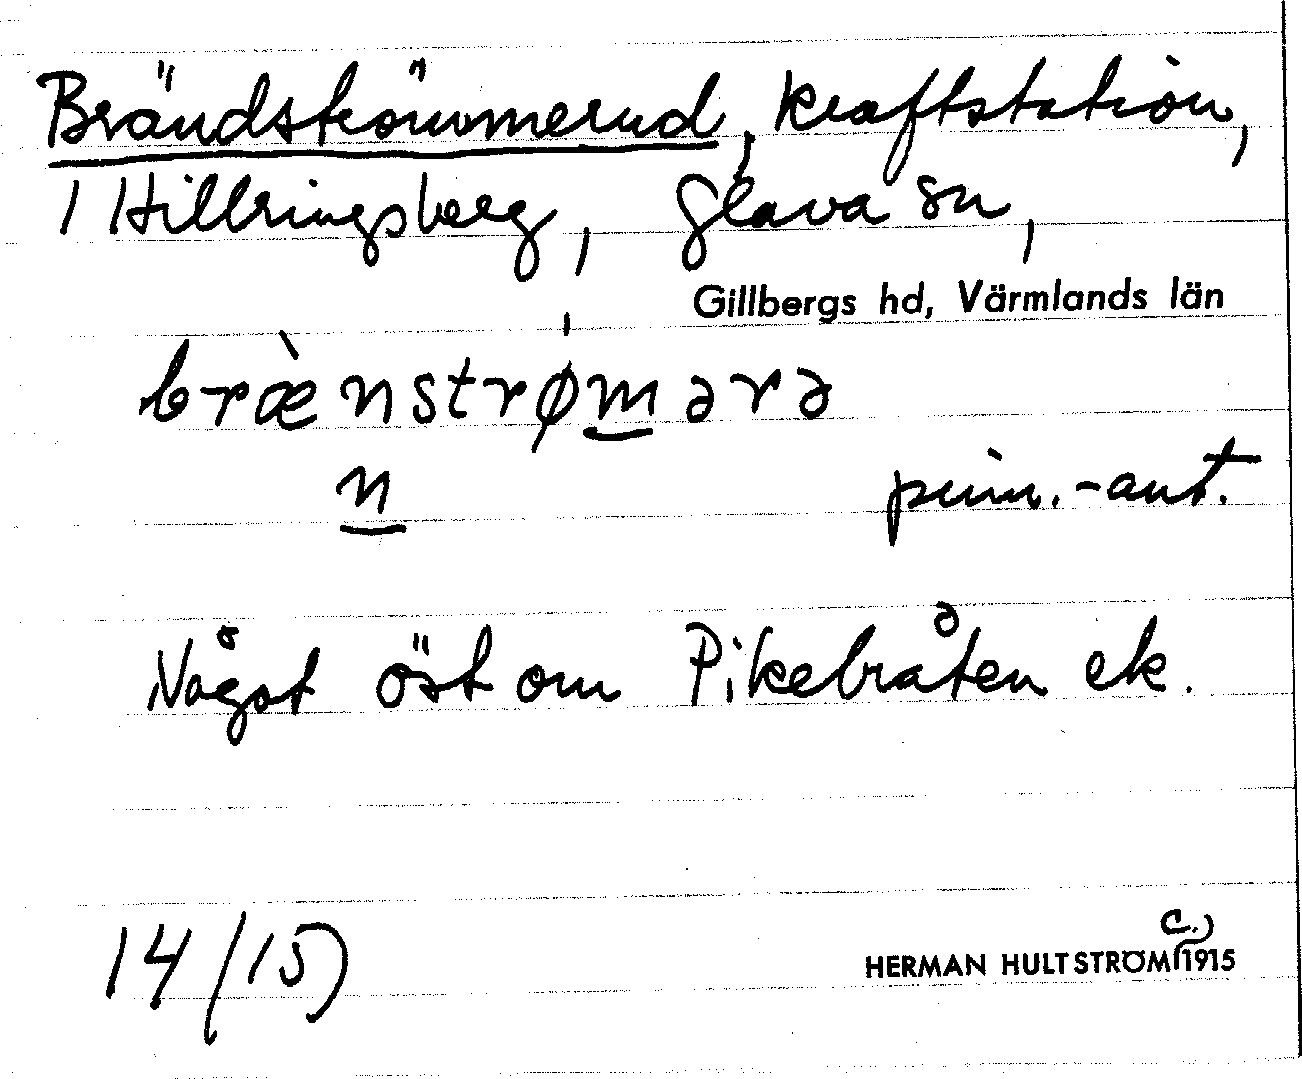 Brändströmmerud, kraftstation,
1 Hillringsberg, Glava sn,
Gillbergs hd, Värmlands län
bræ̀nstrømərə
n
prim.-ant.
Något öst om Pikebråten ek.
14 (15)
HERMAN HULTSTRÖM c.) 1915